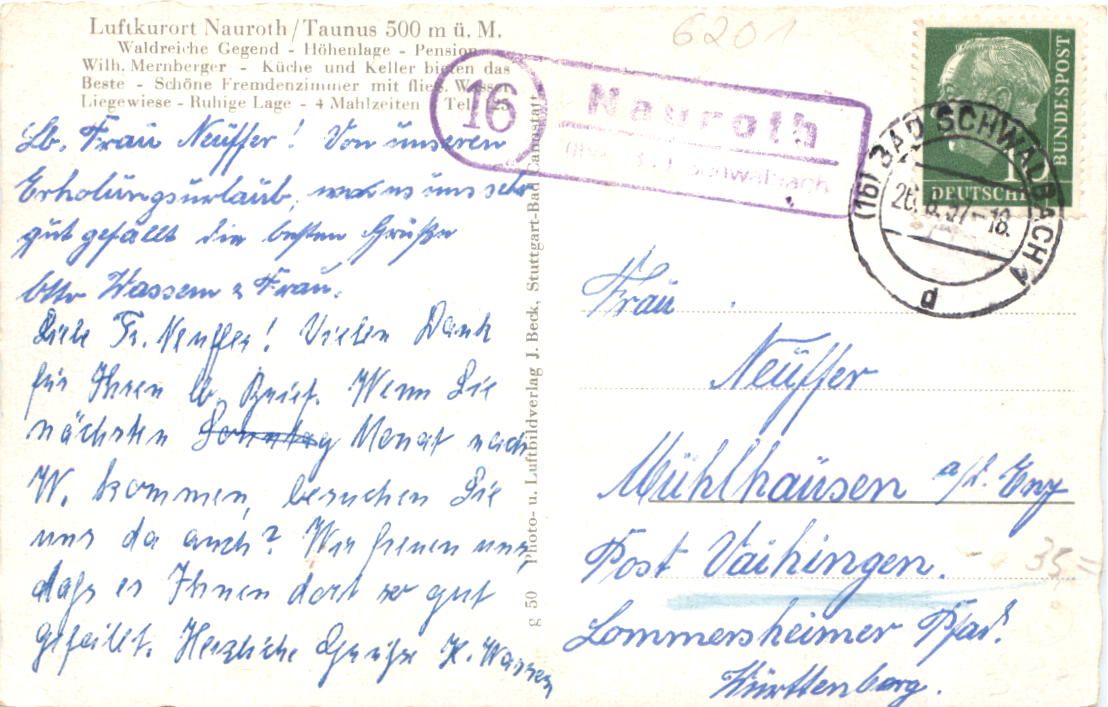 Luftkurort Nauroth/Taunus 500 m ü. M.
Waldreiche Gegend - Höhenlage - Pension
Wilh. Mernberger - Küche und Keller bieten das
Beste - Schöne Fremdenzimmer mit fließ. Wasser
Liegewiese - Ruhige Lage - 4 Mahlzeiten Tel.
Lb. Frau Neuffer! Von unseren
Erholungsurlaub, uns sehr
gut gefällt die besten Grüße
Otto Wassem & Frau.
Liebe Fr. Neuffer! Vielen Dank
für Ihren lb. Brief. Wenn Sie
nächsten Sonntag Monat nach
W. kommen, besuchen Sie
uns da auch? Wir freuen uns,
daß es Ihnen dort so gut
gefällt. Herzliche Grüße K. Wassem
g 50 Photo- u. Luftbildverlag J. Beck, Stuttgart-Bad Cannstatt
6201
16
Nauroth
Schwalbach
BUNDESPOST
10
DEUTSCHE
(16) BAD SCHWALBACH 1
26. 8. 57-18
d
Frau
Neuffer
Mühlhausen a/d. Enz
Post Vaihingen.
35=
Lommersheimer Pfad.
Württenberg.